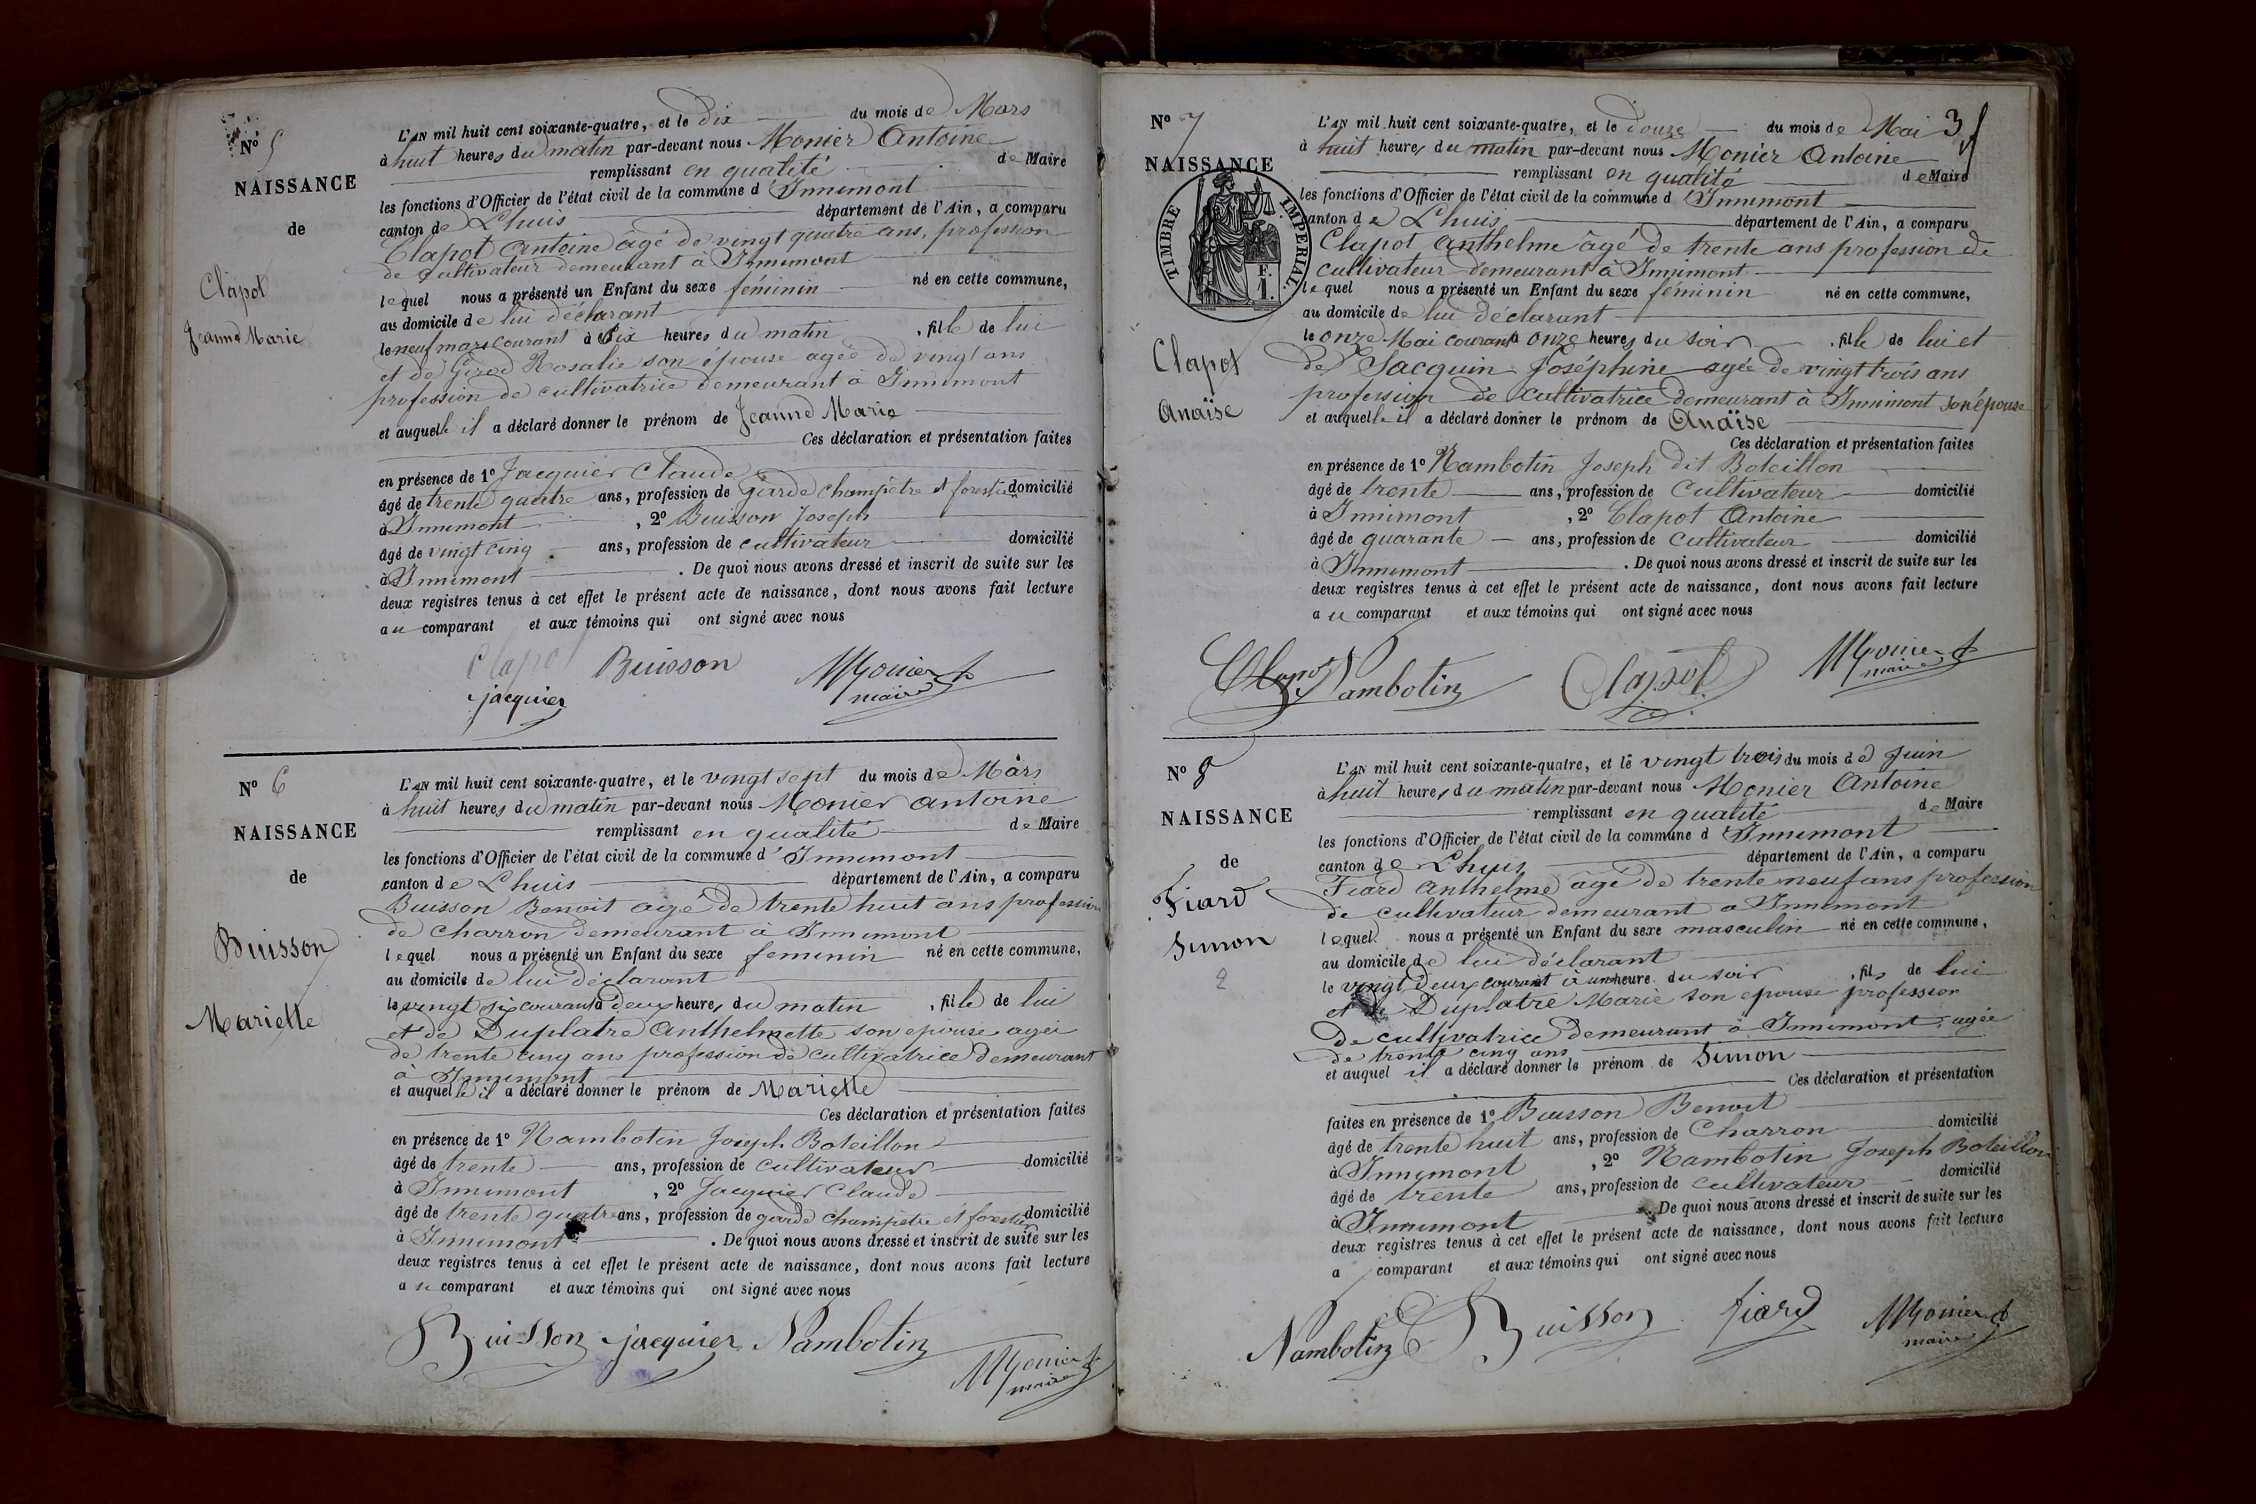 N° 5
NAISSANCE
de
Clapot
Jeanne Marie
L'AN mil huit cent soixante-quatre, et le dix du mois de Mars
à huit heures du matin par-devant nous Monier Antoine
remplissant en qualité de Maire
les fonctions d'Officier de l'état civil de la commune d'Innimont
canton de Lhuis département de l'Ain, a comparu
Clapot Antoine âgé de vingt quatre ans, profession
de cultivateur demeurant à Innimont
lequel nous a présenté un Enfant du sexe féminin né en cette commune,
au domicile de lui déclarant
le neuf mars courant à dix heures du matin, fille de lui
et de Girod Rosalie son épouse agée de vingt ans
profession de cultivatrice demeurant à Innimont
et auquelle il a déclaré donner le prénom de Jeanne Marie
Ces déclaration et présentation faites
en présence de 1° Jacquier Claude
âgé de trente quatre ans, profession de Garde champêtre et forestier domicilié
à Innimont, 2° Buisson Joseph
âgé de vingt cinq ans, profession de cultivateur domicilié
à Innimont. De quoi nous avons dressé et inscrit de suite sur les
deux registres tenus à cet effet le présent acte de naissance, dont nous avons fait lecture
au comparant et aux témoins qui ont signé avec nous
Clapot Buisson Monier
jacquier maire
N° 6
NAISSANCE
de
Buisson
Marielle
L'AN mil huit cent soixante-quatre, et le vingt sept du mois de Mars
à huit heures du matin par-devant nous Monier antoine
remplissant en qualité de Maire
les fonctions d'Officier de l'état civil de la commune d'Innimont
canton de Lhuis département de l'Ain, a comparu
Buisson Benoit agé de trente huit ans profession
de charron demeurant à Innimont
lequel nous a présenté un Enfant du sexe feminin né en cette commune,
au domicile de lui déclarant
le vingt six courant à deux heures du matin, fille de lui
et de Duplatre Anthelmette son epouse agée
de trente cinq ans profession de cultivatrice demeurant
à Innimont
et auquelle il a déclaré donner le prénom de Marielle
Ces déclaration et présentation faites
en présence de 1° Nambotin Joseph Boteillon
âgé de trente ans, profession de cultivateur domicilié
à Innimont, 2° Jacquier Claude
âgé de trente quatre ans, profession de garde champetre et forestier domicilié
à Innimont. De quoi nous avons dressé et inscrit de suite sur les
deux registres tenus à cet effet le présent acte de naissance, dont nous avons fait lecture
au comparant et aux témoins qui ont signé avec nous
Buisson jacquier Nambotin Monier
maire
3
N° 7
NAISSANCE
TIMBRE IMPERIAL.
F.
1.
Clapot
Anaïse
L'AN mil huit cent soixante-quatre, et le douze du mois de Mai
à huit heures du matin par-devant nous Monier Antoine
remplissant en qualité de Maire
les fonctions d'Officier de l'état civil de la commune d'Innimont
canton de Lhuis département de l'Ain, a comparu
Clapot Anthelme âgé de trente ans profession de
cultivateur demeurant à Innimont
lequel nous a présenté un Enfant du sexe féminin né en cette commune,
au domicile de lui déclarant
le onze Mai courant à onze heures du soir, fille de lui et
de Jacquin Joséphine agée de vingt trois ans
profession de cultivatrice demeurant à Innimont son épouse
et auquelle il a déclaré donner le prénom de Anaïse
Ces déclaration et présentation faites
en présence de 1° Nambotin Joseph dit Boteillon
âgé de trente ans, profession de Cultivateur domicilié
à Innimont, 2° Clapot Antoine
âgé de quarante ans, profession de Cultivateur domicilié
à Innimont. De quoi nous avons dressé et inscrit de suite sur les
deux registres tenus à cet effet le présent acte de naissance, dont nous avons fait lecture
au comparant et aux témoins qui ont signé avec nous
Clapot Nambotin Clapot Monier
maire
N° 8
NAISSANCE
de
Fiard
Simon
2
L'AN mil huit cent soixante-quatre, et le vingt trois du mois de Juin
à huit heures du matin par-devant nous Monier Antoine
remplissant en qualité de Maire
les fonctions d'Officier de l'état civil de la commune d'Innimont
canton de Lhuis département de l'Ain, a comparu
Fiard Anthelme âgé de trente neuf ans profession
de cultivateur demeurant a Innimont
lequel nous a présenté un Enfant du sexe masculin né en cette commune,
au domicile de lui déclarant
le vingt deux courant à une heure du soir, fils de lui
et de Duplatre Marie son epouse profession
de cultivatrice demeurant à Innimont agée
de trente cinq ans
et auquel il a déclaré donner le prénom de Simon
Ces déclaration et présentation
faites en présence de 1° Buisson Benoit
âgé de trente huit ans, profession de Charron domicilié
à Innimont, 2° Nambotin Joseph Boteillon
âgé de trente ans, profession de cultivateur domicilié
à Innimont. De quoi nous avons dressé et inscrit de suite sur les
deux registres tenus à cet effet le présent acte de naissance, dont nous avons fait lecture
a comparant et aux témoins qui ont signé avec nous
Nambotin Buisson fiard Monier
maire